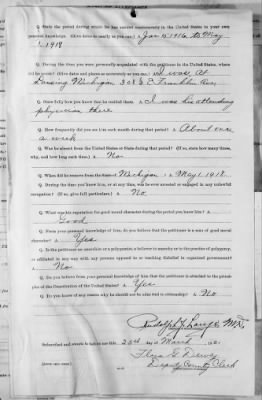 Q. State the period during which he has resided continuously in the United States in your own
personal knowledge. (Give dates as nearly as you can.) A. Jan 15 1916 to May
1 1918
Q. During the time you were personally acquainted with the petitioner in the United States, where
did he reside? (Give dates and places as accurately as you can.) A. I was At
Lansing Michigan 308 E Franklin Ave
Q. State fully how you knew that he resided there. A. I was his attending
physician there
Q. How frequently did you see him each month during that period? A. About once
a week
Q. Was he absent from the United States or State during that period? (If so, state how many times,
why, and how long each time.) A. No
Q. When did he remove from the State of Michigan A. May 1. 1918.
Q. During the time you knew him, or at any time, was he ever arrested or engaged in any unlawful
occupation? (If so, give full particulars.) A. No
Q. What was his reputation for good moral character during the period you knew him? A.
Good
Q. From your personal knowledge of him, do you believe that the petitioner is a man of good moral
character? A. Yes
Q. Is the petitioner an anarchist or a polygamist, a believer in anarchy or in the practice of polygamy,
or affiliated in any way with any persons opposed to or teaching disbelief in organized government?
A. No
Q. Do you believe from your personal knowledge of him that the petitioner is attached to the princi-
ples of the Constitution of the United States? A. Yes
Q. Do you know of any reason why he should not be admitted to citizenship? A. No
Rudolph J. Lange M.D.
Subscribed and sworn to before me this 23rd day March
Flora G. Dewey
Deputy County Clerk